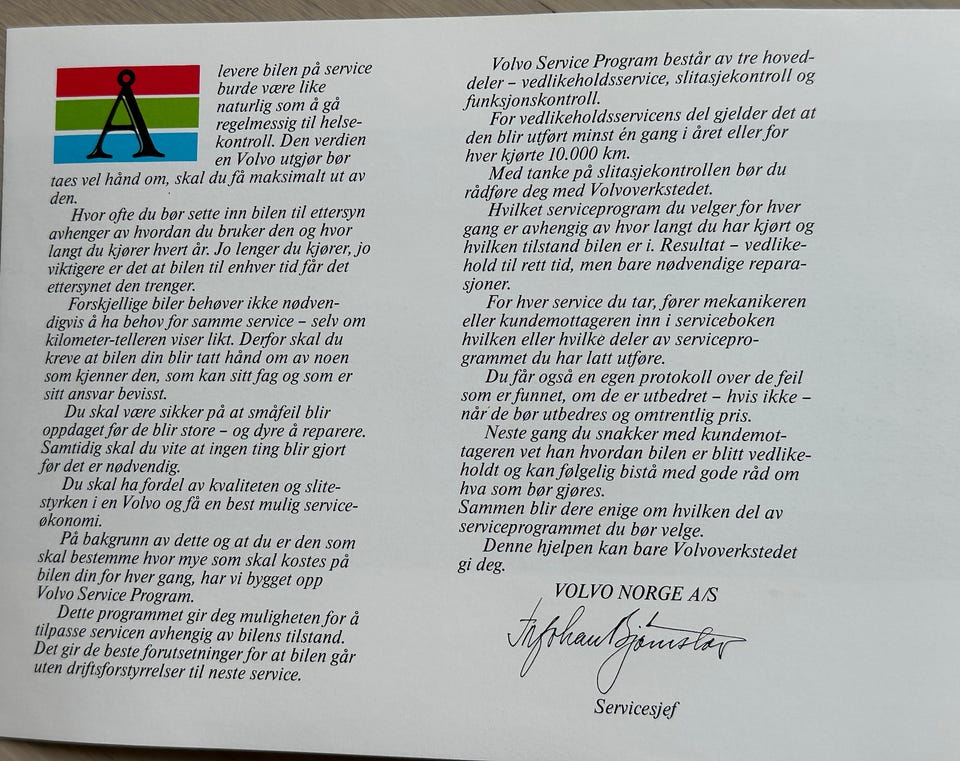 Å levere bilen på service
burde være like
naturlig som å gå
regelmessig til helse-
kontroll. Den verdien
en Volvo utgjør bør
taes vel hånd om, skal du få maksimalt ut av
den.
Hvor ofte du bør sette inn bilen til ettersyn
avhenger av hvordan du bruker den og hvor
langt du kjører hvert år. Jo lenger du kjører, jo
viktigere er det at bilen til enhver tid får det
ettersynet den trenger.
Forskjellige biler behøver ikke nødven-
digvis å ha behov for samme service – selv om
kilometer-telleren viser likt. Derfor skal du
kreve at bilen din blir tatt hånd om av noen
som kjenner den, som kan sitt fag og som er
sitt ansvar bevisst.
Du skal være sikker på at småfeil blir
oppdaget før de blir store – og dyre å reparere.
Samtidig skal du vite at ingen ting blir gjort
før det er nødvendig.
Du skal ha fordel av kvaliteten og slite-
styrken i en Volvo og få en best mulig service-
økonomi.
På bakgrunn av dette og at du er den som
skal bestemme hvor mye som skal kostes på
bilen din for hver gang, har vi bygget opp
Volvo Service Program.
Dette programmet gir deg muligheten for å
tilpasse servicen avhengig av bilens tilstand.
Det gir de beste forutsetninger for at bilen går
uten driftsforstyrrelser til neste service.
Volvo Service Program består av tre hoved-
deler – vedlikeholdsservice, slitasjekontroll og
funksjonskontroll.
For vedlikeholdservicens del gjelder det at
den blir utført minst én gang i året eller for
hver kjørte 10.000 km.
Med tanke på slitasjekontrollen bør du
rådføre deg med Volvoverkstedet.
Hvilket serviceprogram du velger for hver
gang er avhengig av hvor langt du har kjørt og
hvilken tilstand bilen er i. Resultat – vedlike-
hold til rett tid, men bare nødvendige repara-
sjoner.
For hver service du tar, fører mekanikeren
eller kundemottageren inn i serviceboken
hvilken eller hvilke deler av servicepro-
grammet du har latt utføre.
Du får også en egen protokoll over de feil
som er funnet, om de er utbedret – hvis ikke –
når de bør utbedres og omtrentlig pris.
Neste gang du snakker med kundemot-
tageren vet han hvordan bilen er blitt vedlike-
holdt og kan følgelig bistå med gode råd om
hva som bør gjøres.
Sammen blir dere enige om hvilken del av
serviceprogrammet du bør velge.
Denne hjelpen kan bare Volvoverkstedet
gi deg.
VOLVO NORGE A/S
Servicesjef